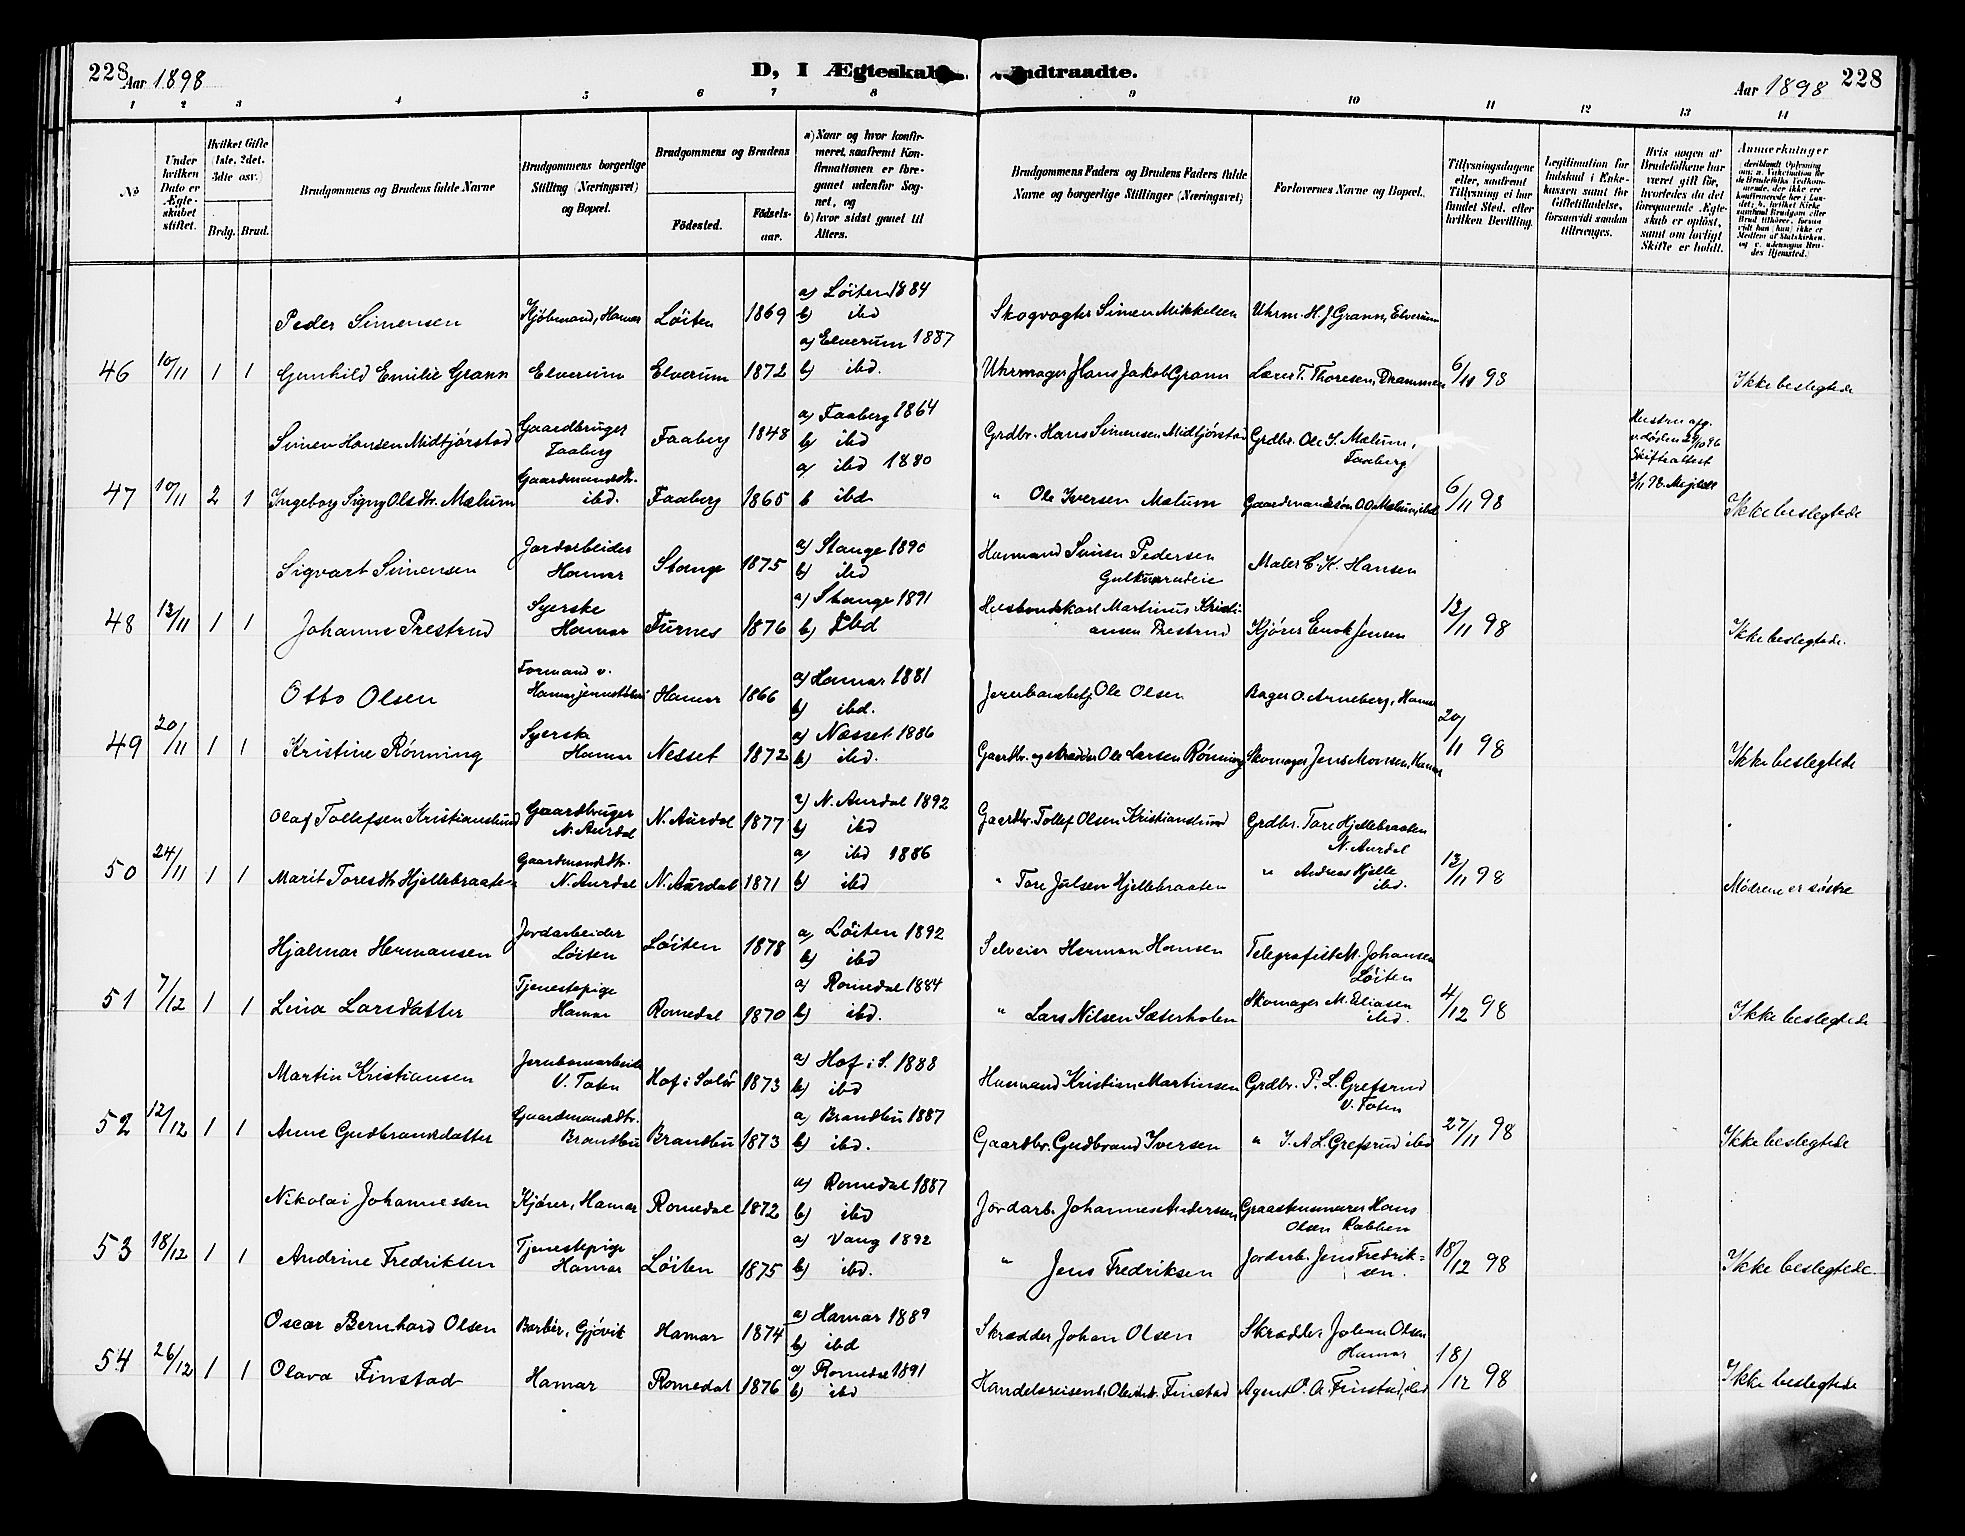 228 Aar 1898
D, I Ægteskab indtraadte.
Aar 1898 228
1 2 3 4 5 6 7 8 9 10 11 12 13 14
No
Under hvilken Dato er Ægteskabet stiftet.
Hvilket Gifte (1ste, 2det, 3die osv.)
Brdg. Brud.
Brudgommens og Brudens fulde Navne
Brudgommens borgerlige Stilling (Næringsvei) og Bopæl.
Brudgommens og Brudens
Fødested.
Fødselsaar.
a) Naar og hvor konfirmeret, saafremt Konfirmationen er foregaaet udenfor Sognet, og
b) hvor sidst gaaet til Alters.
Brudgommens Faders og Brudens Faders fulde Navne og borgerlige Stillinger (Næringsvei)
Forlovernes Navne og Bopæl.
Tillysningsdagene eller, saafremt Tillysning ei har fundet Sted, efter hvilken Bevilling.
Legitimation for Indskud i Enkekassen samt for Giftetilladelse, forsaavidt saadan tiltrænges.
Hvis nogen af Brudefolkene har været gift før, hvorledes da det foregaaende Ægteskab er opløst, samt om lovligt Skifte er holdt.
Anmærkninger
Peder Simensen Kjøbmand, Hamar Løiten 1869 a) Løiten 1884 b) ibd Skogvogter Simen Mikkelsen Uhrm. H. J. Grann, Elverum
46 10/11 1 1 Gunhild Emilie Grann Elverum Elverum 1872 a) Elverum 1887 b) ibd. Uhrmager Hans Jakob Grann Lærer T. Thoresen, Drammen 6/11 98 Ikke beslegtede
Simen Hansen Midtjørstad Gaardbruger Faaberg Faaberg 1848 a) Faaberg 1864 b) ibd Grdbr. Hans Simensen Midtjørstad Grdbr. Ole S. Mælum, Faaberg
47 10/11 2 1 Ingeborg Signy Olsdtr. Mælum Gaardmandsdtr. ibd. Faaberg 1865 a) ibd 1880 b ibd " Ole Iversen Mælum Gaardmandssøn O. O. Mælum, ibd 6/11 98 Ikke beslegtede
Sigvart Simensen Jordarbeider Hamar Stange 1875 a) Stange 1890 b) ibd Husmand Simen Pedersen Maler C. K. Hansen
48 13/11 1 1 Johanne Prestrud Syerske Hamar Furnes 1876 a) Stange 1891 b) Ibd Husbondskarl Martinus Kristiansen Prestrud Kjører Enok Jensen 13/11 98 Ikke beslegtede.
Otto Olsen Formand v. Hamar Hamar 1866 a) Hamar 1881 b) ibd. Jernbanebetj. Ole Olsen Bager O. Arneberg, Hamar
49 20/11 1 1 Kristine Rønning Syerske Hamar Nesset 1872 a) Næsset 1886 b) ibd. Gaardbr. og skrædder Ole Larsen Rønning Skomager Jens Monsen, Hamar 20/11 98 Ikke beslegtede
Olaf Tollefsen Kristianslund Gaardbruger N. Aurdal N. Aurdal 1877 a) N. Aurdal 1892 b) ibd Gaardbr. Tollef Olsen Kristianslund Grdbr. Tore Hjellebraaten N. Aurdal
50 24/11 1 1 Marit Toresdtr Hjellebraaten Gaardmandsdtr. N. Aurdal N. Aurdal 1871 a) ibd 1886 b) ibd " Tore Julsen Hjellebraaten " Andreas Hjelle ibd. 13/11 98 Mødrene er søstre
Hjalmar Hermansen Jordarbeider Løiten Løiten 1878 a) Løiten 1892 b) ibd Selveier Herman Hansen Telegrafist M. Johansen Løiten
51 7/12 1 1 Lina Larsdatter Tjenestepige Hamar Romedal 1870 a) Romedal 1884 b) ibd. " Lars Nilsen Sæterholen Skomager M. Eliasen ibd. 4/12 98 Ikke beslegtede
Martin Kristiansen Jernbanearbeider V. Toten Hof i Solør 1873 a) Hof i S. 1888 b) ibd Husmand Kristian Martinsen Grdbr. P. L. Grefsrud V. Toten
52 12/12 1 1 Anne Gudbrandsdatter Gaardmandsdtr. Brandbu Brandbu 1873 a) Brandbu 1887 b) ibd. Gaardbr. Gudbrand Iversen " J. A. L. Grefsrud ibd 27/11 98 Ikke beslegtede
Nikolai Johannessen Kjører, Hamar Romedal 1872 a) Romedal 1887 b) ibd Jordarb. Johannes Andersen Hans Olsen Rabben
53 18/12 1 1 Andrine Fredriksen Tjenestepige Hamar Løiten 1875 a) Vang 1892 b) ibd. " Jens Fredriksen Jordarb. Jens Fredriksen. 18/12 98 Ikke beslegtede.
Oscar Bernhard Olsen Barbér, Gjøvik Hamar 1874 a) Hamar 1889 b) ibd Skrædder Johan Olsen Skrædder Johan Olsen Hamar
54 26/12 1 1 Olava Finstad Hamar Romedal 1876 a) Romedal 1891 b) ibd Finstad Agent O. A. Finstad, ibd 18/12 98 Ikke beslegtede